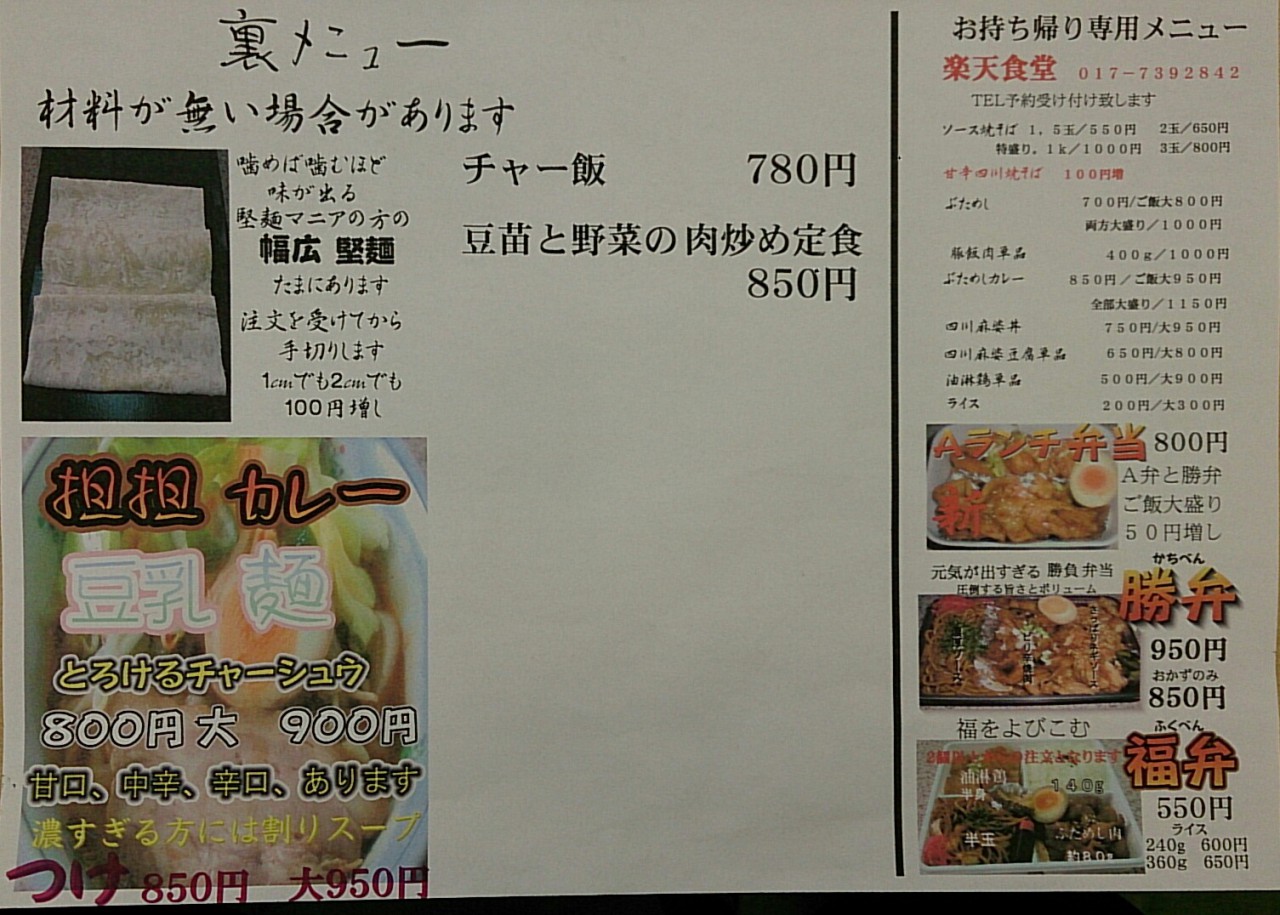 裏メニュー
材料が無い場合があります
噛めば噛むほど
味が出る
堅麺マニアの方の
幅広 堅麺
たまにあります
注文を受けてから
手切りします
1cmでも2cmでも
100円増し
チャー飯 780円
豆苗と野菜の肉炒め定食
850円
担担 カレー
豆乳 麺
とろけるチャーシュウ
800円 大 900円
甘口、中辛、辛口、あります
濃すぎる方には割りスープ
つけ 850円 大950円
お持ち帰り専用メニュー
楽天食堂 017-7392842
TEL予約受け付け致します
ソース焼そば 1,5玉/550円 2玉/650円
特盛り。1k/1000円 3玉/800円
甘辛四川焼そば 100円増
ぶためし 700円/ご飯大800円
両方大盛り/1000円
豚飯肉単品 400g/1000円
ぶためしカレー 850円/ご飯大950円
全部大盛り/1150円
四川麻婆丼 750円/大950円
四川麻婆豆腐単品 650円/大800円
油淋鶏単品 500円/大900円
ライス 200円/大300円
Aランチ弁当 800円
新
A弁と勝弁
ご飯大盛り
50円増し
元気が出すぎる 勝負弁当
圧倒する旨さとボリューム
かちべん
勝弁
ピリ辛焼肉
さっぱりネギソース
950円
おかずのみ
850円
福をよびこむ
ふくべん
福弁
の注文となります
油淋鶏
半身
140g
半玉
ぶためし肉
約80g
550円
ライス
240g 600円
360g 650円